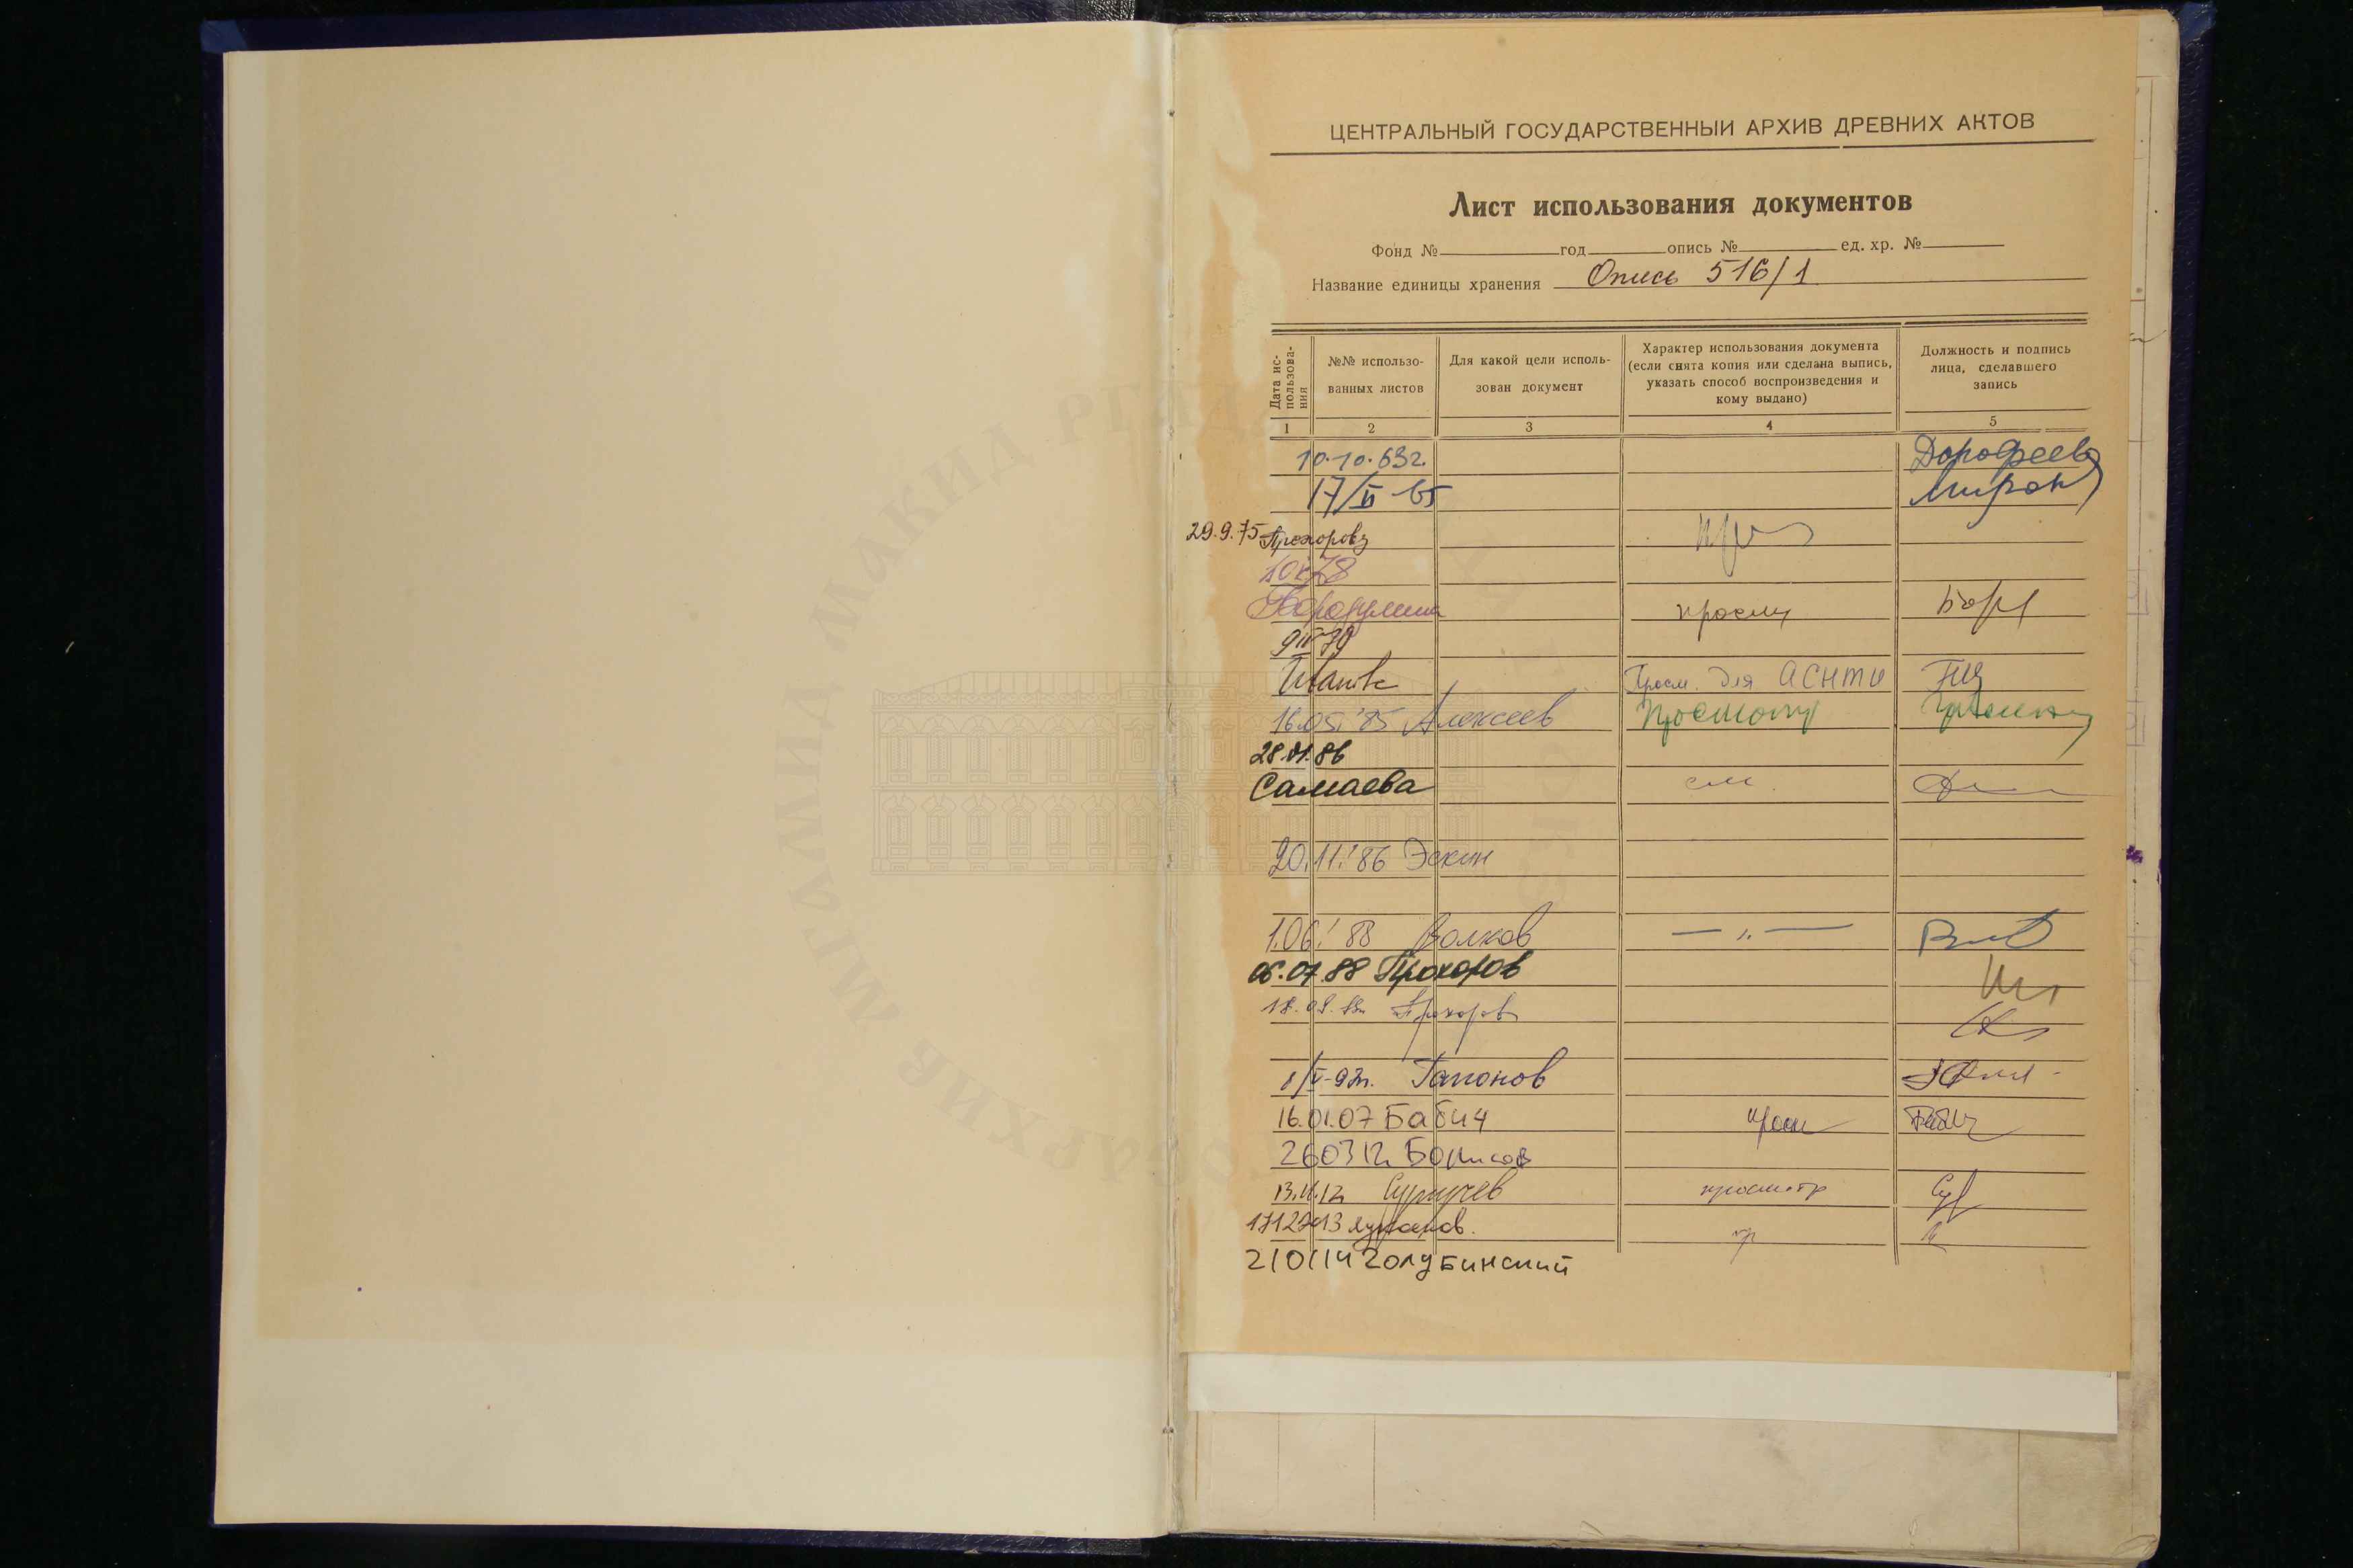 ЦЕНТРАЛЬНЫЙ ГОСУДАРСТВЕННЫЙ АРХИВ ДРЕВНИХ АКТОВ
Лист использования документов
Фонд № год опись № ед. хр. №
Название единицы хранения Опись 516/1
Дата ис-
пользова-
ния
№№ использо-
ванных листов
Для какой цели исполь-
зован документ
Характер использования документа
(если снята копия или сделана выпись,
указать способ воспроизведения и
кому выдано)
Должность и подпись
лица, сделавшего
запись
1 2 3 4 5
10.10.63г. Дорофеев
17/VI-65 Мирон
29.9.75 Прохоров
Бородулина просм
Иванов Просм. для АСНТИ
16.05.'85 Алексеев Просмотр
28.01.86
Самаева см.
20.11.'86 Эскин
1.06.'88 Волков — ,, —
06.07.88 Прохоров
Прохоров
Гапонов
16.01.07 Бабич просм Бабич
260312 Борисов
13.11.12 просмотр
пр
210114 Голубинский
МГАМИД МАКИД РГАДА